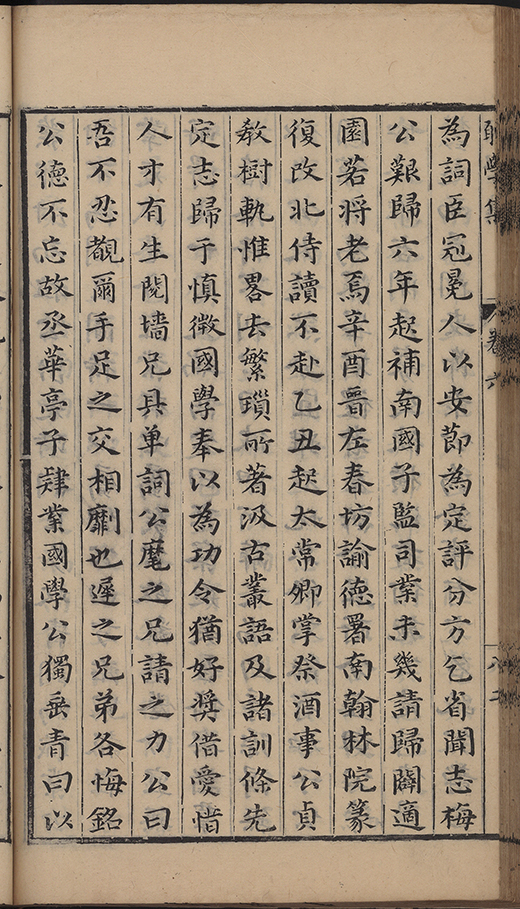 為詞臣冠冕人以安節為定評分方乞省聞志梅
公艱歸六年起補南國子監司業未幾請歸闢適
園若將老焉辛酉晉左春坊諭德署南翰林院篆
復改北侍讀不赴乙丑起太常卿掌祭酒事公貞
教樹軌惟畧去繁瑣所著汲古叢語及諸訓條先
定志歸于慎微國學奉以為功令猶好奬借愛惜
人才有生鬩墻兄具单詞公麾之兄請之力公曰
吾不忍覩爾手足之交相劘也遲之兄弟各悔銘
公德不忘故丞華亭子肄業國學公獨垂青曰以
卷六